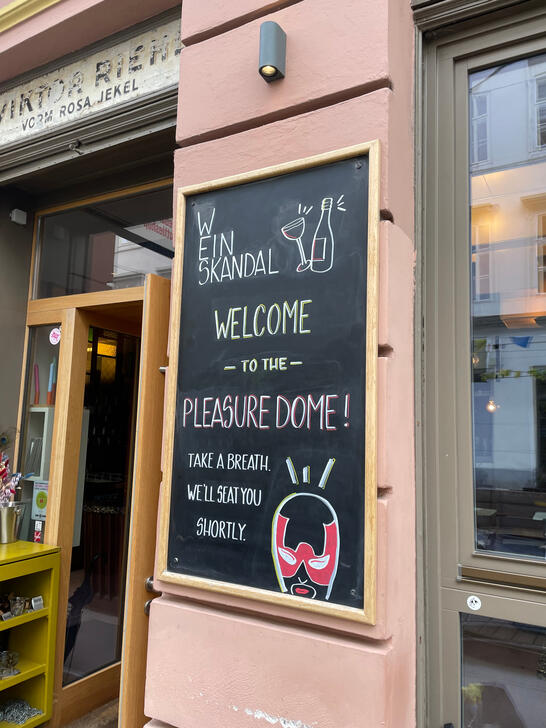 VORM. ROSA JEKEL
W
EIN
SKANDAL
WELCOME
– TO THE –
PLEASURE DOME!
TAKE A BREATH.
WE'LL SEAT YOU
SHORTLY.